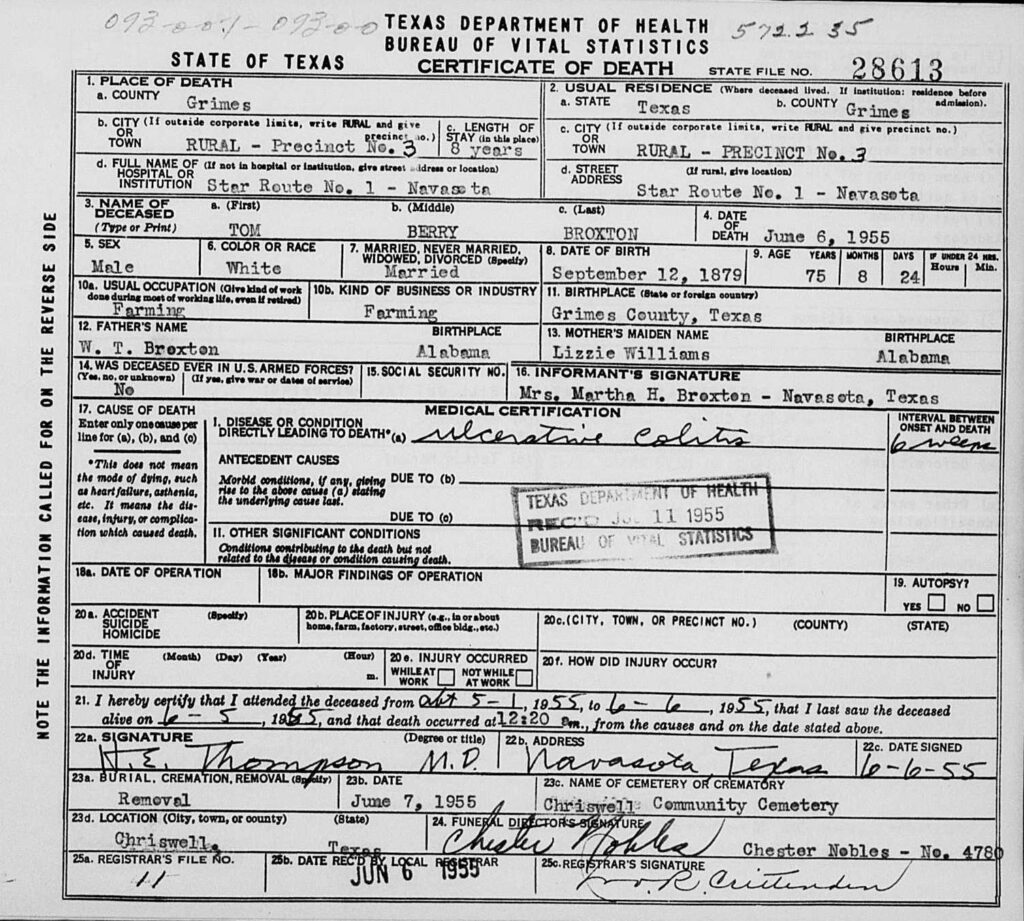 093-001-093-00
TEXAS DEPARTMENT OF HEALTH
572.2 35
BUREAU OF VITAL STATISTICS
STATE OF TEXAS
CERTIFICATE OF DEATH
STATE FILE NO. 28613
NOTE THE INFORMATION CALLED FOR ON THE REVERSE SIDE
1. PLACE OF DEATH
a. COUNTY
Grimes
2. USUAL RESIDENCE (Where deceased lived. If institution: residence before admission).
a. STATE Texas b. COUNTY Grimes
b. CITY (If outside corporate limits, write RURAL and give precinct no.)
OR
TOWN RURAL - Precinct No. 3
c. LENGTH OF
STAY (in this place)
8 years
c. CITY (If outside corporate limits, write RURAL and give precinct no.)
OR
TOWN RURAL - PRECINCT No. 3
d. FULL NAME OF (If not in hospital or institution, give street address or location)
HOSPITAL OR
INSTITUTION Star Route No. 1 - Navasota
d. STREET (If rural, give location)
ADDRESS Star Route No. 1 - Navasota
3. NAME OF DECEASED
(Type or Print)
a. (First) b. (Middle) c. (Last)
TOM BERRY BROXTON
4. DATE
OF
DEATH June 6, 1955
5. SEX
Male
6. COLOR OR RACE
White
7. MARRIED, NEVER MARRIED,
WIDOWED, DIVORCED (Specify)
Married
8. DATE OF BIRTH
September 12, 1879
9. AGE YEARS MONTHS DAYS IF UNDER 24 HRS.
Hours Min.
75 8 24
10a. USUAL OCCUPATION (Give kind of work
done during most of working life, even if retired)
Farming
10b. KIND OF BUSINESS OR INDUSTRY
Farming
11. BIRTHPLACE (State or foreign country)
Grimes County, Texas
12. FATHER'S NAME BIRTHPLACE
W. T. Broxton Alabama
13. MOTHER'S MAIDEN NAME BIRTHPLACE
Lizzie Williams Alabama
14. WAS DECEASED EVER IN U.S. ARMED FORCES?
(Yes, no, or unknown) (If yes, give war or dates of service)
No
15. SOCIAL SECURITY NO.
16. INFORMANT'S SIGNATURE
Mrs. Martha H. Broxton - Navasota, Texas
17. CAUSE OF DEATH
Enter only one cause per
line for (a), (b), and (c)
*This does not mean
the mode of dying, such
as heart failure, asthenia,
etc. It means the dis-
ease, injury, or complica-
tion which caused death.
MEDICAL CERTIFICATION
I. DISEASE OR CONDITION
DIRECTLY LEADING TO DEATH* (a) Ulcerative Colitis
INTERVAL BETWEEN
ONSET AND DEATH
6 weeks
ANTECEDENT CAUSES
Morbid conditions, if any, giving
rise to the above cause (a) stating
the underlying cause last.
DUE TO (b)
DUE TO (c)
TEXAS DEPARTMENT OF HEALTH
REC'D JUL 11 1955
BUREAU OF VITAL STATISTICS
II. OTHER SIGNIFICANT CONDITIONS
Conditions contributing to the death but not
related to the disease or condition causing death.
18a. DATE OF OPERATION
18b. MAJOR FINDINGS OF OPERATION
19. AUTOPSY?
YES NO
20a. ACCIDENT (Specify)
SUICIDE
HOMICIDE
20b. PLACE OF INJURY (e.g., in or about
home, farm, factory, street, office bldg., etc.)
20c. (CITY, TOWN, OR PRECINCT NO.) (COUNTY) (STATE)
20d. TIME (Month) (Day) (Year) (Hour)
OF
INJURY m.
20e. INJURY OCCURRED
WHILE AT WORK NOT WHILE AT WORK
20f. HOW DID INJURY OCCUR?
21. I hereby certify that I attended the deceased from abt 5-1, 1955, to 6-6, 1955, that I last saw the deceased
alive on 6-5, 1955, and that death occurred at 12:20 am., from the causes and on the date stated above.
22a. SIGNATURE (Degree or title)
H.E. Thompson M.D.
22b. ADDRESS
Navasota, Texas
22c. DATE SIGNED
6-6-55
23a. BURIAL, CREMATION, REMOVAL (Specify)
Removal
23b. DATE
June 7, 1955
23c. NAME OF CEMETERY OR CREMATORY
Chriswell Community Cemetery
23d. LOCATION (City, town, or county) (State)
Chriswell, Texas
24. FUNERAL DIRECTOR'S SIGNATURE
Chester Nobles Chester Nobles - No. 4780
25a. REGISTRAR'S FILE NO.
11
25b. DATE REC'D BY LOCAL REGISTRAR
JUN 6 1955
25c. REGISTRAR'S SIGNATURE
R. Crittenden